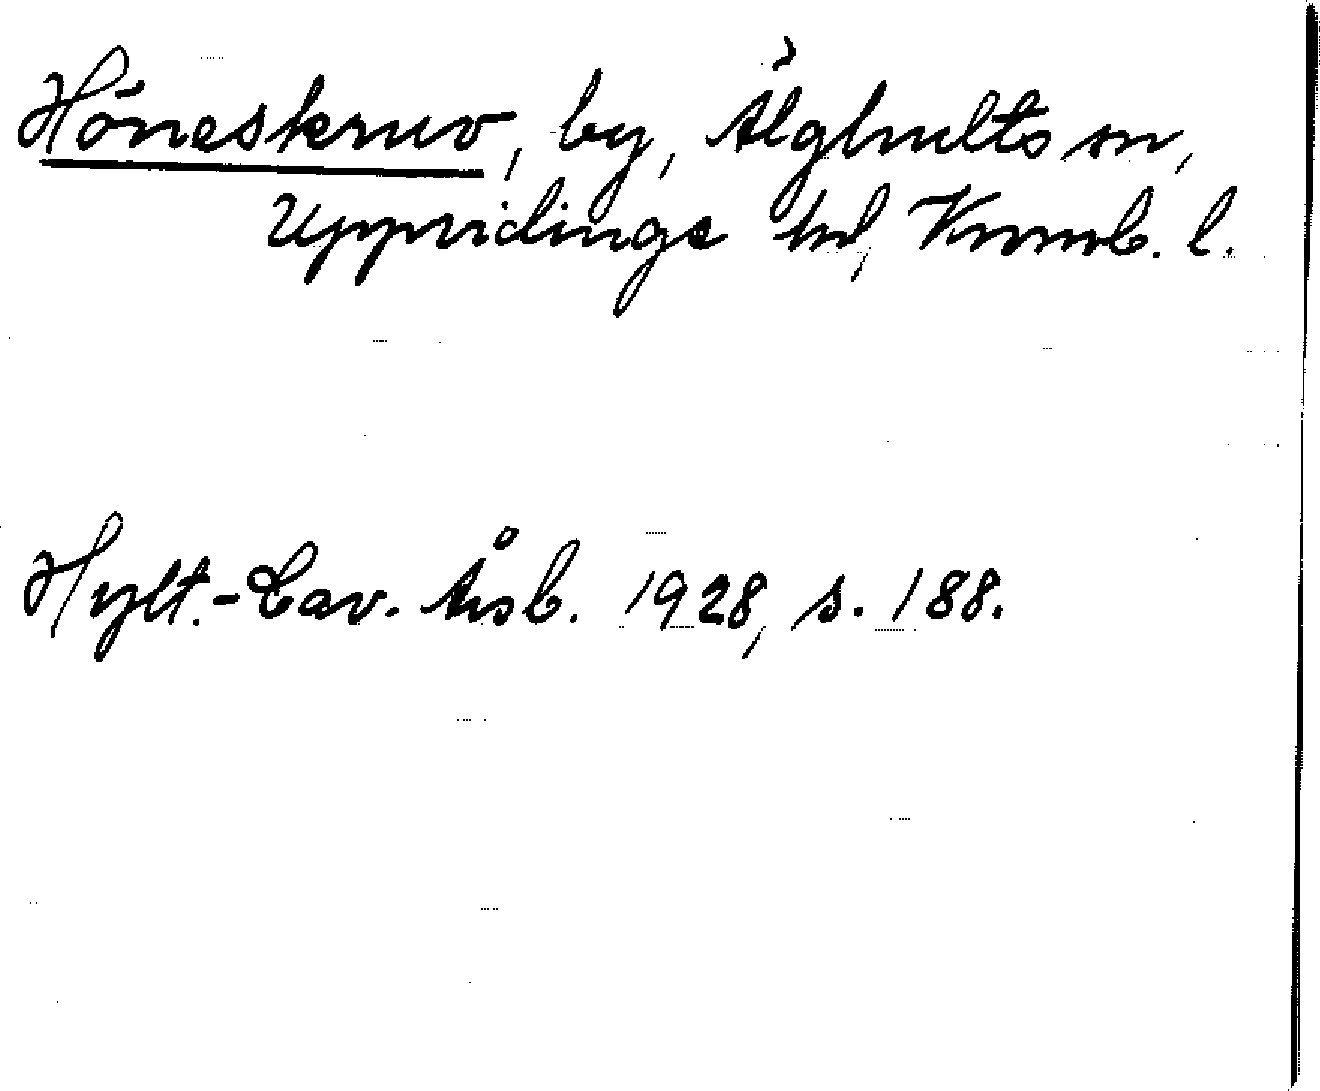 Höneskruv, by, Älghults sn,
Uppvidinge hd, Kronob. l.
Hylt.-Cav. Årsb. 1928, s. 188.